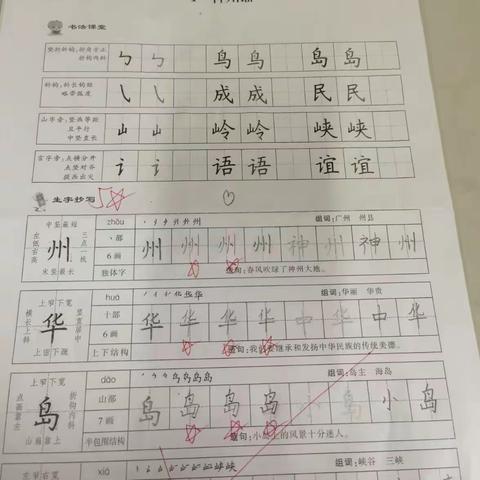 书法课堂
竖折折钩,折角方正
折钩内斜
ㄅ ㄅ 鸟 鸟 岛 岛
斜钩,斜长钩短
略带弧度
㇂ ㇂ 成 成 民 民
山字旁,竖画等距
且平行
中竖直长
山 山 岭 岭 峡 峡
言字旁:点横分开
点竖对齐
提画出尖
讠 讠 语 语 谊 谊
生字抄写
zhōu
组词:广州 州县
中竖最短
左低右高
州
三点一线
末竖最长
丶部
6画
独体字
州 州 州 州 神 州 神 州
造句:春风吹绿了神州大地。
huá
组词:华丽 华贵
上窄下宽
横长上斜
华
竖直居中
上密下疏
十部
6画
上下结构
华 华 华 华 中 华 中 华
造句:我们要继承和发扬中华民族的传统美德。
dǎo
组词:岛主 海岛
上窄下宽
点画靠左
岛
折钩内斜
山扁靠上
山部
7画
半包围结构
岛 岛 岛 岛 小 岛 小 岛
造句:小岛上的风景十分迷人。
左窄右宽
xiá
组词:峡谷 三峡